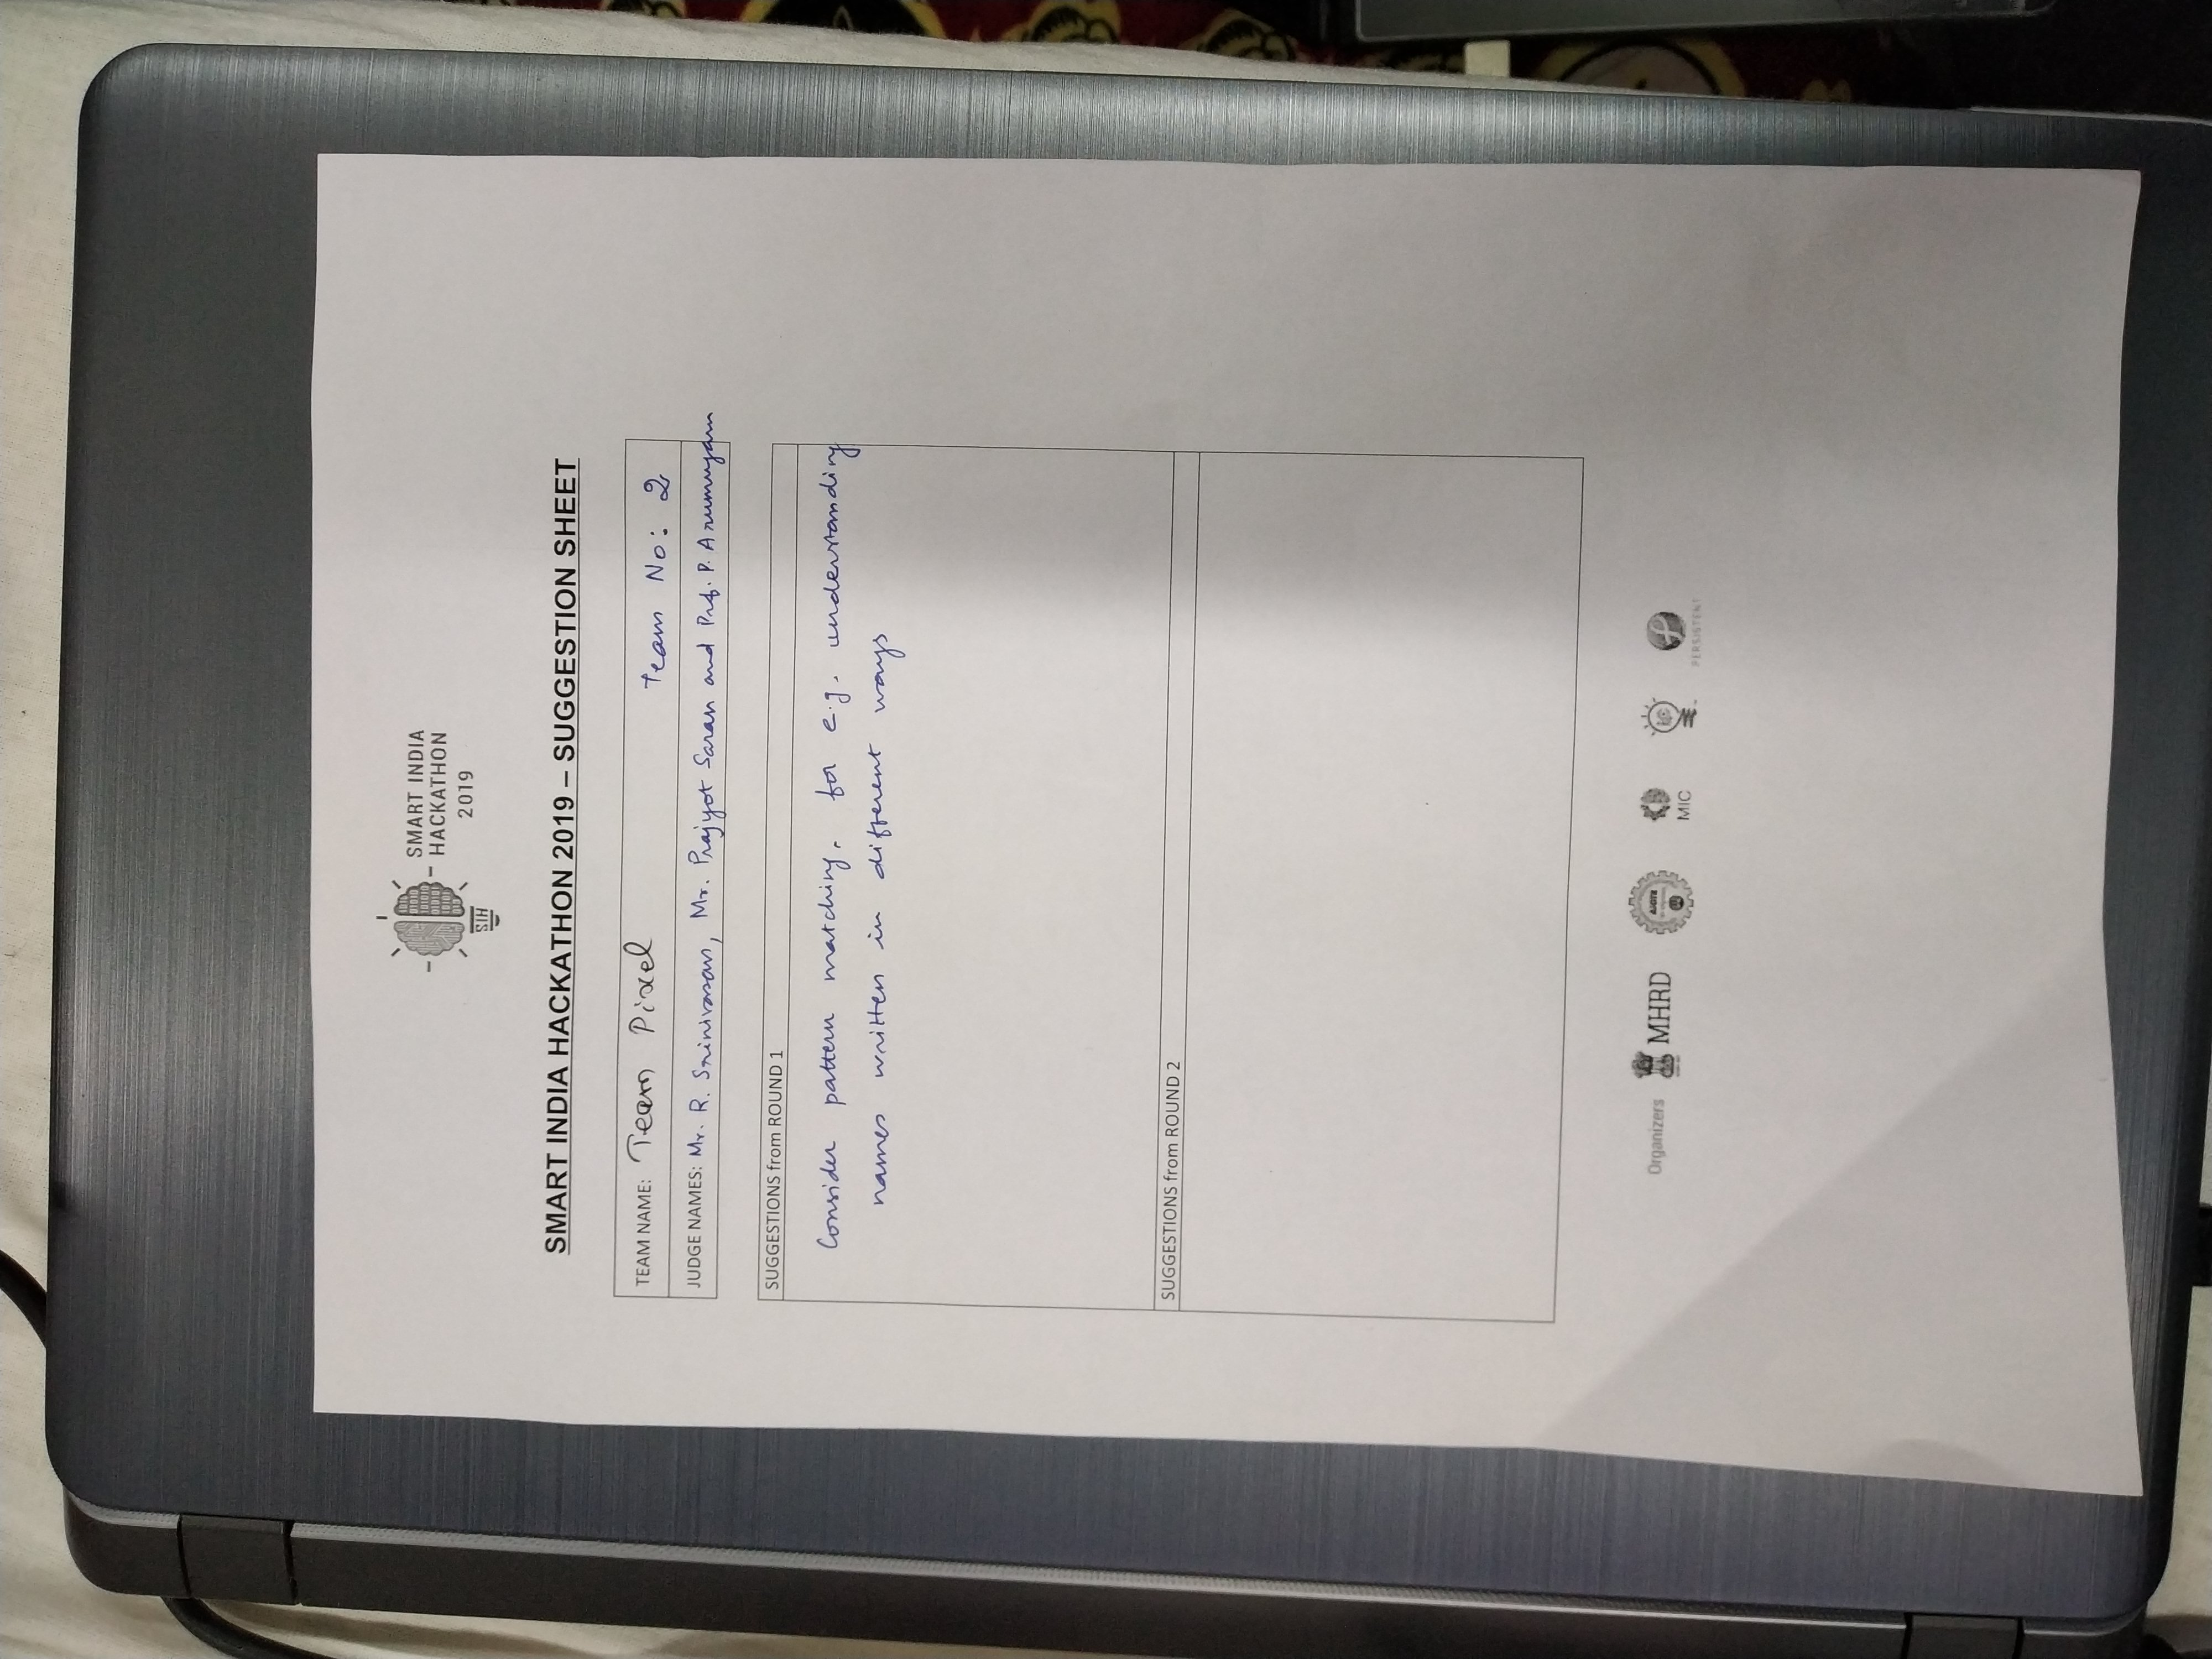 SMART INDIA
HACKATHON
2019
SIH
SMART INDIA HACKATHON 2019 – SUGGESTION SHEET
TEAM NAME: Team Pixel Team No: 2
JUDGE NAMES: Mr. R. Srinivasan, Mr. Prajyot Saran and Prof. P. Arumugam
SUGGESTIONS from ROUND 1
Consider pattern matching, for e.g. understanding
names written in different ways
SUGGESTIONS from ROUND 2
Organizers MHRD AICTE MIC PERSISTENT